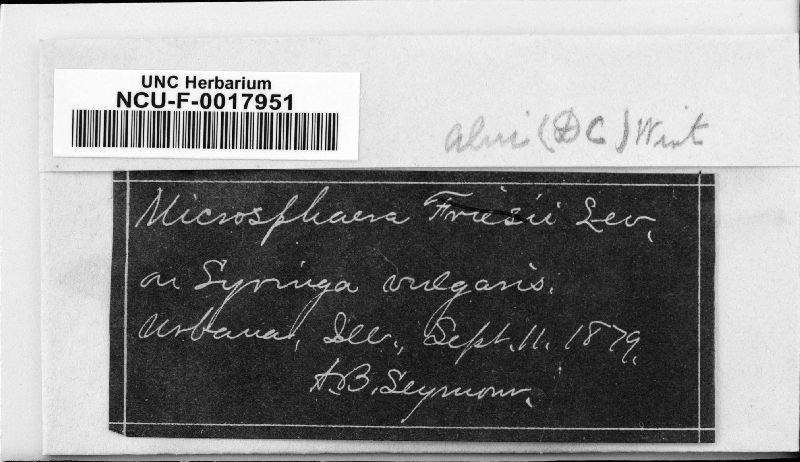 UNC Herbarium
NCU-F-0017951
alni (DC) Wint
Microsphaera Friesii Lev,
on Syringa vulgaris.
Urbana, Ill., Sept. 11. 1879.
A.B. Seymour.